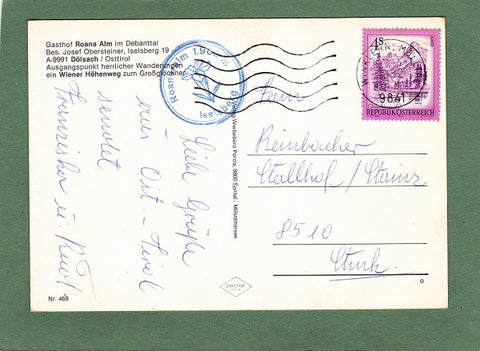 Gasthof Roana Alm im Debanttal
Bes. Josef Obersteiner, Iselsberg 19
A-9991 Dölsach / Osttirol
Ausgangspunkt herrlicher Wanderungen
ein Wiener Höhenweg zum Großglockner
Roana Alm
Iselsberg
4S
9841
REPUBLIK ÖSTERREICH
Liebe Grüße
aus Ost-Tirol
sendet
Franziska u. Kurt
Fam.
Reinbacher
Stallhof / Stainz
8510
Stmk.
Werbebüro Porcia, 9800 Spittal - Millstättersee
Nr. 469